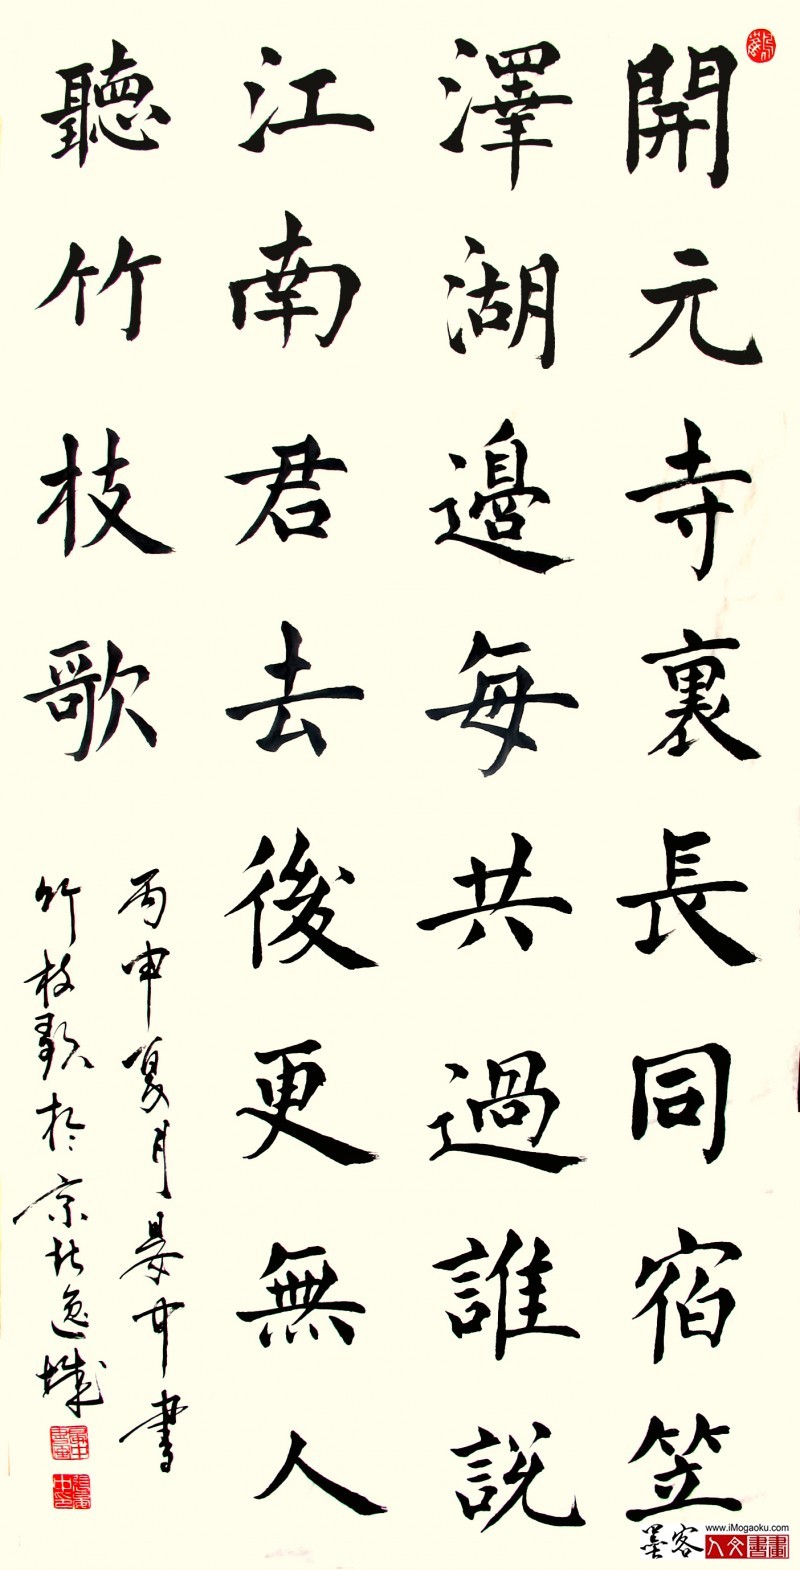 開元寺裏長同宿笠
澤湖邉每共過誰說
江南君去後更無人
聽竹枝歌
丙申夏月晏中書
竹枝歌於京北逸城
www.iMogaoku.com
墨客
人文書畫